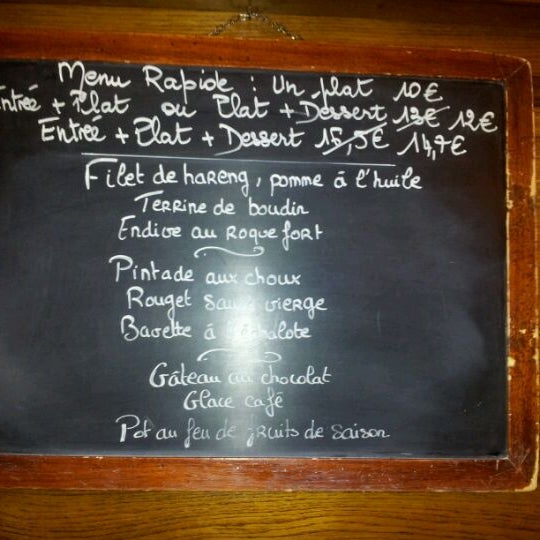 Menu Rapide : Un plat 10€
Entrée + Plat ou Plat + Dessert 13€ 12€
Entrée + Plat + Dessert 16,5€ 14,7€
Filet de hareng, pomme à l'huile
Terrine de boudin
Endive au roquefort
Pintade aux choux
Rouget sauce vierge
Bavette à l'échalote
Gâteau au chocolat
Glace café
Pot au feu de fruits de saison